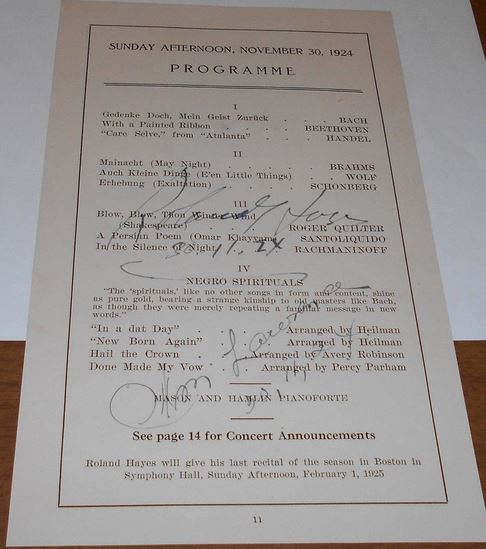 SUNDAY AFTERNOON, NOVEMBER 30, 1924
PROGRAMME
I
Gedenke Doch, Mein Geist Zurück . . . BACH
With a Painted Ribbon . . . . BEETHOVEN
"Care Selve," from "Atalanta" . . . HANDEL
II
Mainacht (May Night) . . . . . BRAHMS
Auch Kleine Dinge (E'en Little Things) . . WOLF
Erhebung (Exaltation) . . . . SCHONBERG
III
Blow, Blow, Thou Winter Wind
(Shakespeare) . . . ROGER QUILTER
A Persian Poem (Omar Khayyam) SANTOLIQUIDO
In the Silence of Night . . RACHMANINOFF
30.11.24
IV
NEGRO SPIRITUALS
"The 'spirituals,' like no other songs in form and content, shine
as pure gold, bearing a strange kinship to old masters like Bach,
as though they were merely repeating a familiar message in new
words."
"In a dat Day" . . . Arranged by Heilman
"New Born Again" . . . Arranged by Heilman
Hail the Crown . . Arranged by Avery Robinson
Done Made My Vow . . Arranged by Percy Parham
MASON AND HAMLIN PIANOFORTE
See page 14 for Concert Announcements
Roland Hayes will give his last recital of the season in Boston in
Symphony Hall, Sunday Afternoon, February 1, 1925
11